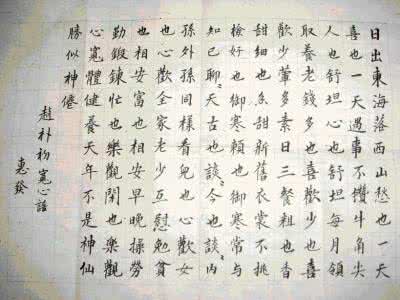 日出東海落西山愁也一天
喜也一天遇事不鑽牛角尖
人也舒坦心也舒坦每月領
取養老錢多也喜歡少也喜
歡少葷多素日三餐粗也香
甜細也香甜新舊衣裳不挑
檢好也御寒賴也御寒常与
知己聊〻天古也談〻今也談〻内
孫外孫同樣看兒也心歡女
也心歡全家老少互慰勉貧
也相安富也相安早晚操勞
勤鍛鍊忙也樂觀閑也樂觀
心寬體健養天年不是神仙
勝似神僊
趙朴初寬心話
惠發